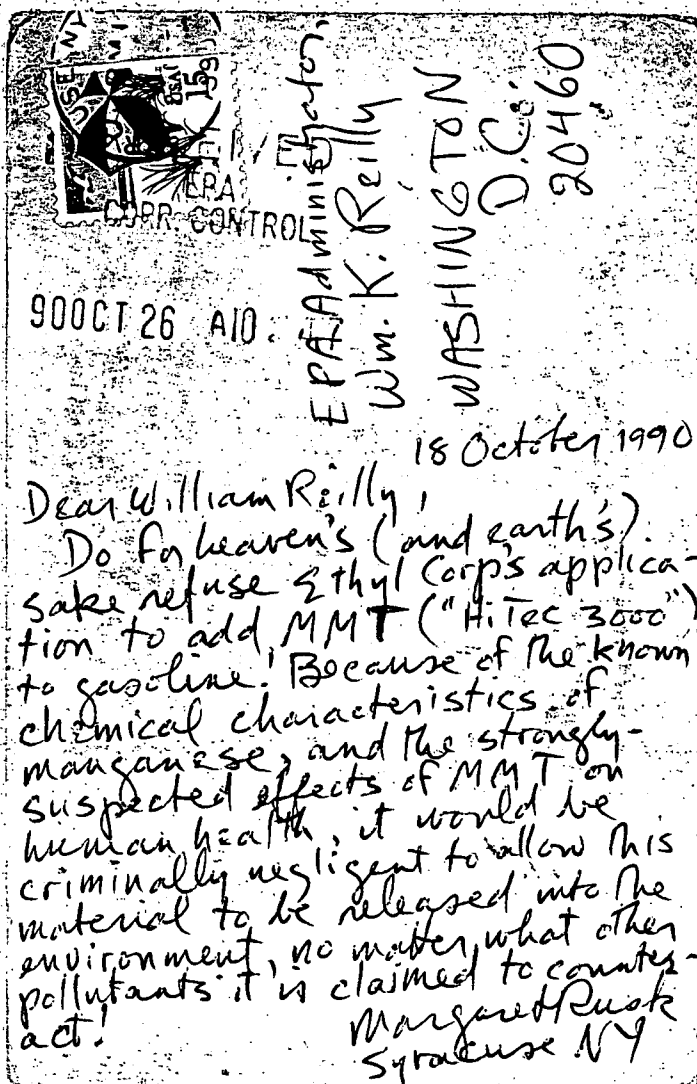 USE
15
199
EPA
CORR. CONTROL
900CT 26 A10
EPA Administrator,
Wm. K. Reilly
WASHINGTON
D.C.
20460
18 October 1990
Dear William Reilly,
Do for heaven's (and earth's)
sake refuse Ethyl Corp's applica-
tion to add MMT ("HiTec 3000")
to gasoline! Because of the known
chemical characteristics of
manganese, and the strongly-
suspected effects of MMT on
human health, it would be
criminally negligent to allow this
material to be released into the
environment, no matter what other
pollutants it is claimed to counter-
act!
Margaret Rusk
Syracuse NY